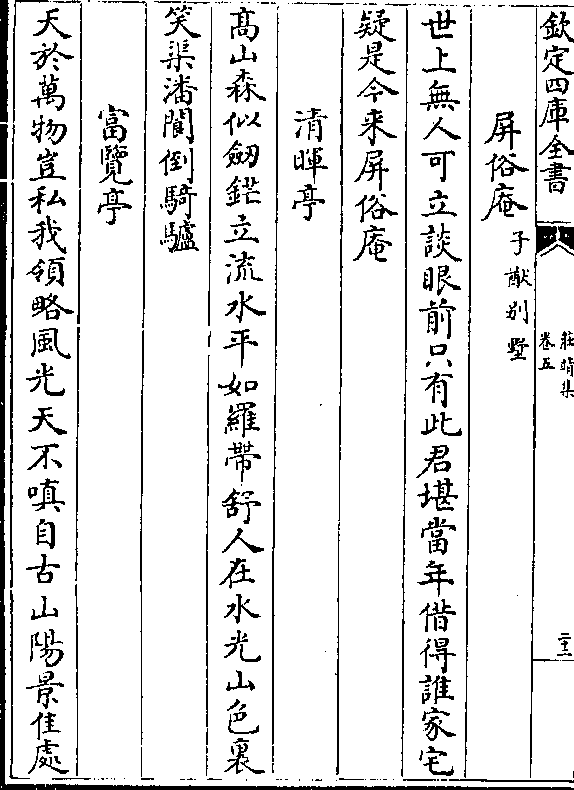 欽定四庫全書
莊靖集
卷五
二十二
屏俗庵子猷别墅
世上無人可立談眼前只有此君堪當年借得誰家宅
疑是今来屏俗庵
清暉亭
髙山森似劒鋩立流水平如羅帶舒人在水光山色裏
笑渠潘閬倒騎驢
富覽亭
天於萬物豈私我領略風光天不嗔自古山陽景佳處